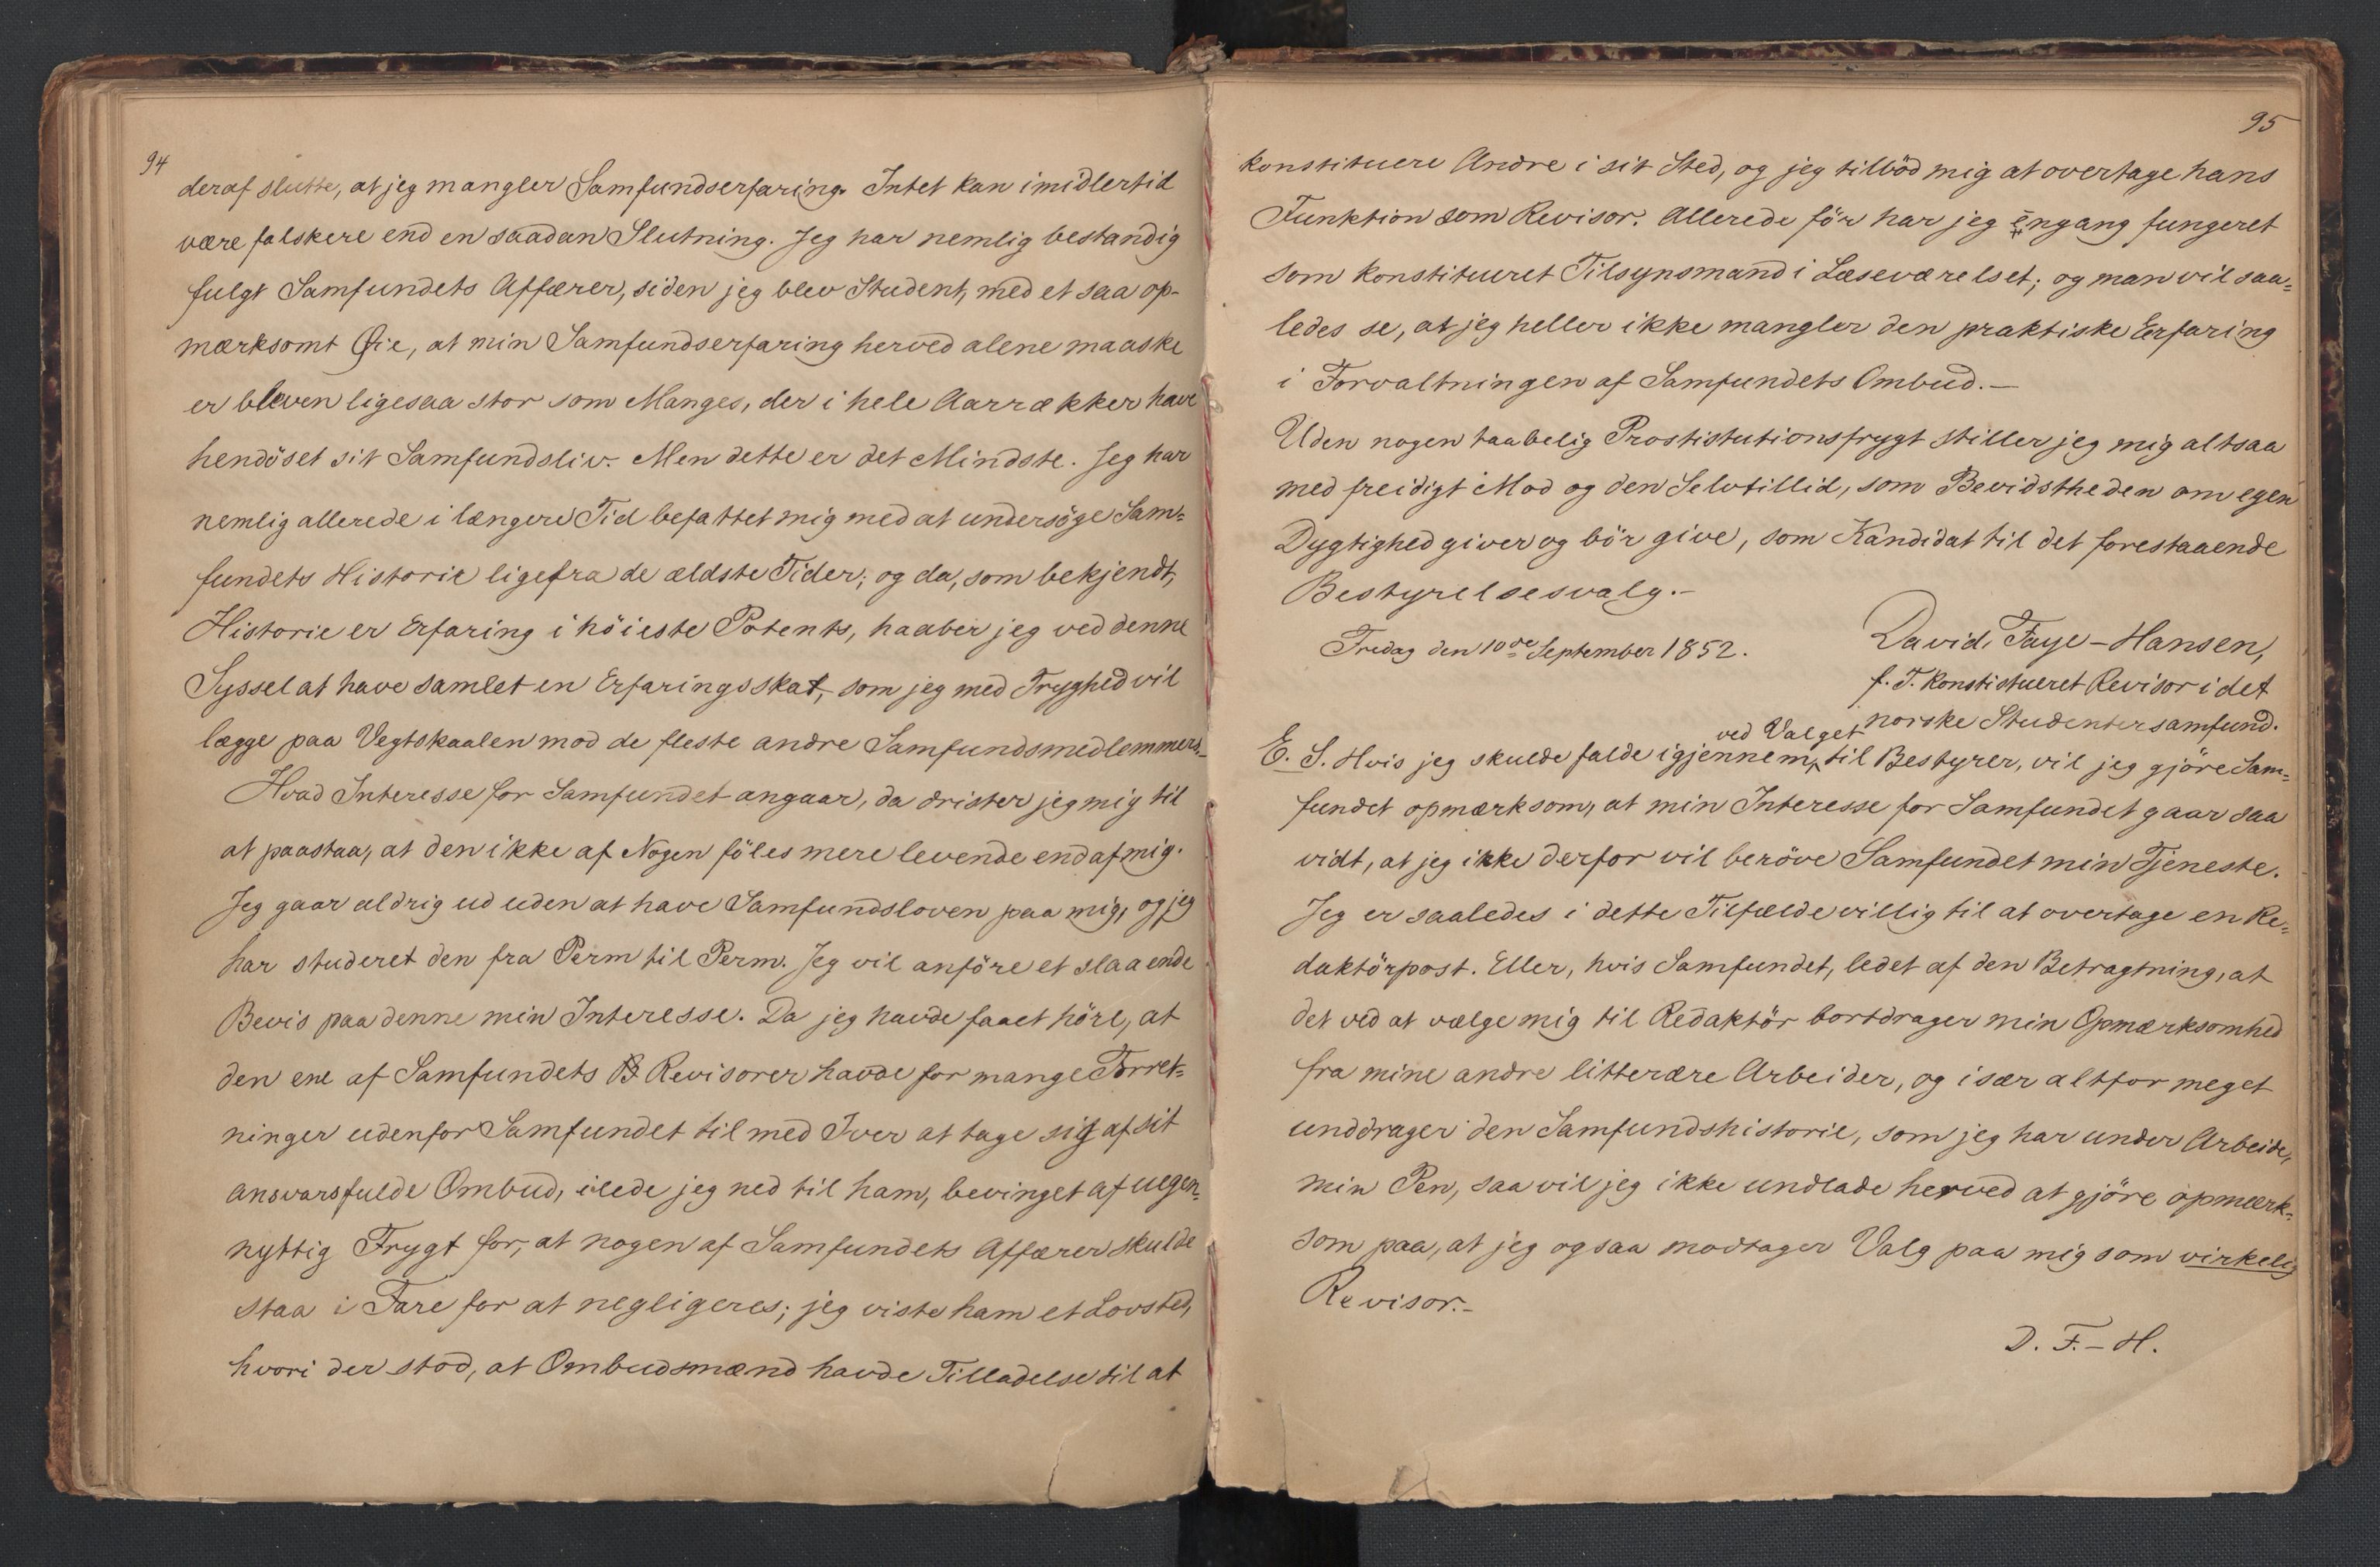 94
deraf slutte, at jeg mangler Samfundserfaring. Intet kan imidlertid
være falskere end en saadan Slutning. Jeg har nemlig bestandig
fulgt Samfundets Affærer, siden jeg blev Student, med et saa op-
mærksomt Øie, at min Samfundserfaring herved alene maaske
er bleven ligesaa stor som Manges, der i hele Aarrækker have
hendöset sit Samfundsliv. Men dette er det Mindste. Jeg har
nemlig allerede i længere Tid befattet mig med at undersöge Sam=
fundets Historie ligefra de ældste Tider; og da, som bekjendt,
Historie er Erfaring i höieste Potents, haaber jeg ved denne
Syssel at have samlet en Erfaringsskat, som jeg med Tryghed vil
lægge paa Vegtskaalen mod de fleste andre Samfundsmedlemmers.
Hvad Interesse for Samfundet angaar, da drister jeg mig til
at paastaa, at den ikke af Nogen föles mere levende end af mig.
Jeg gaar aldrig ud uden at have Samfundsloven paa mig, og jeg
har studeret den fra Perm til Perm. Jeg vil anföre et slaaende
Bevis paa denne min Interesse. Da jeg havde faaet höre, at
den ene af Samfundets B Revisorer havde for mange Forret-
ninger udenfor Samfundet til med Iver at tage sig af sit
ansvarsfulde Ombud, ilede jeg ned til ham, bevinget af uegen-
nyttig Frygt for, at nogen af Samfundets Affærer skulde
staa i Fare for at negligeres; jeg viste ham et Lovsted,
hvori der stod, at Ombudsmænd havde Tilladelse til at
95
konstituere Andre i sit Sted, og jeg tilböd mig at overtage hans
Funktion som Revisor. Allerede för har jeg engang fungeret
som konstitueret Tilsynsmand i Læseværelset; og man vil saa=
ledes se, at jeg heller ikke mangler den praktiske Erfaring
i Forvaltningen af Samfundets Ombud.—
Uden nogen taabelig Prostistutionsfrygt stiller jeg mig altsaa
med freidigt Mod og den Selvtillid, som Bevidstheden om egen
Dygtighed giver og bör give, som Kandidat til det forestaaende
Bestyrelsesvalg.—
Fredag den 10de September 1852.
David Faye-Hansen,
f. T. konstistueret Revisor i det
norske Studentersamfund.
ved Valget
E. S. Hvis jeg skulde falde igjennem, til Bestyrer, vil jeg gjöre Sam=
fundet opmærksom, at min Interesse for Samfundet gaar saa
vidt, at jeg ikke derfor vil beröve Samfundet min Tjeneste.
Jeg er saaledes i dette Tilfælde villig til at overtage en Re=
daktörpost. Eller, hvis Samfundet, ledet af den Betragtning, at
det ved at vælge mig til Redaktör bortdrager min Opmærksomhed
fra mine andre litterære Arbeider, og især altfor meget
unddrager den Samfundshistorie, som jeg har under Arbeide,
min Pen, saa vil jeg ikke undlade herved at gjöre opmærk=
som paa, at jeg ogsaa modtager Valg paa mig som virkelig
Revisor.—
D. F.-H.